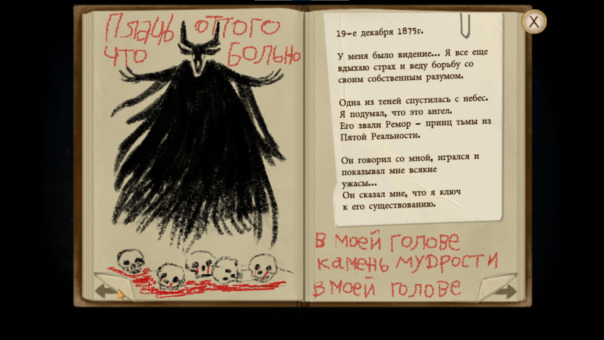 Плачь оттого
что больно
19-е декабря 1875г.
У меня было видение... Я все еще
вдыхаю страх и веду борьбу со
своим собственным разумом.
Одна из теней спустилась с небес.
Я подумал, что это ангел.
Его звали Ремор – принц тьмы из
Пятой Реальности.
Он говорил со мной, игрался и
показывал мне всякие
ужасы...
Он сказал мне, что я ключ
к его существованию.
В моей голове
камень мудрости
в моей голове
X